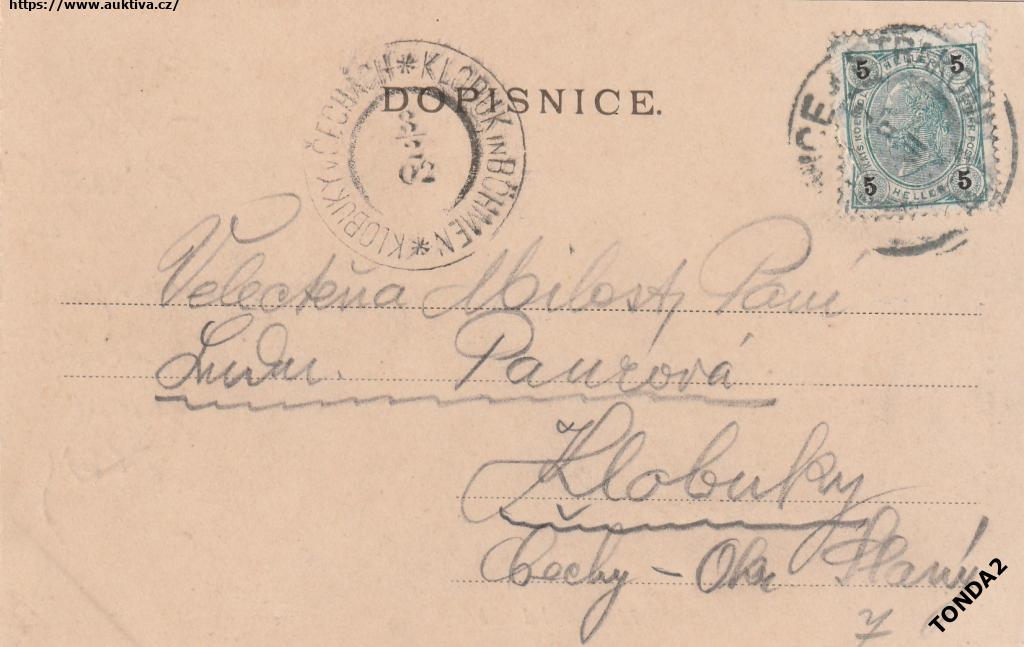 https://www.auktiva.cz/
DOPISNICE.
KLOBUKY v ČECHÁCH * KLOBUK IN BÖHMEN *
5 HELLER 5
5 HELLER 5
Velectěná Milost. Paní
Ludm. Paurová
Klobuky
Čechy - Okr. Slaný
TONDA2